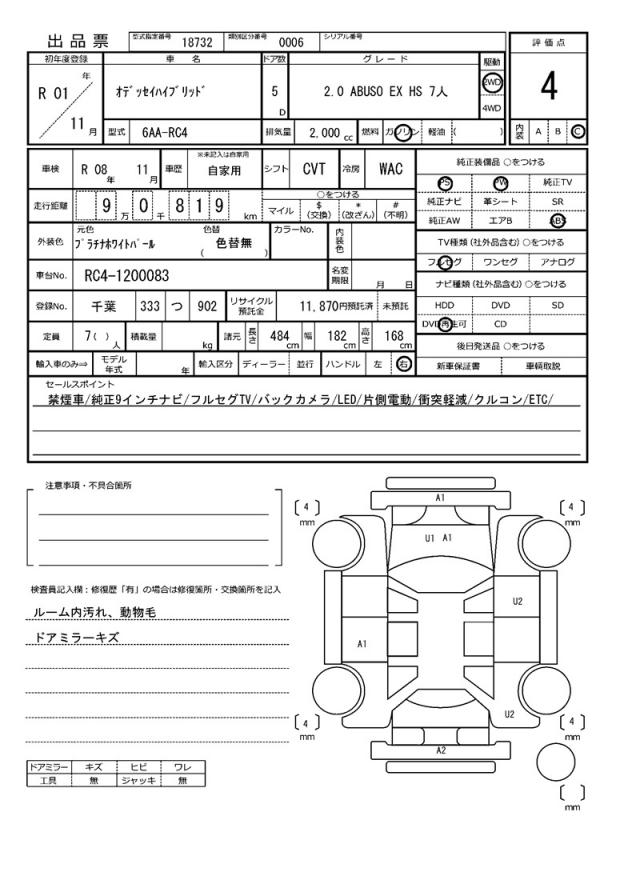 出品票
型式指定番号 18732 類別区分番号 0006 シリアル番号
評価点
4
内装 A B C
初年度登録 車名 ドア数 グレード 駆動
R 01 年 11 月
ｵﾃﾞｯｾｲﾊｲﾌﾞﾘｯﾄﾞ
5 D
2.0 ABUSO EX HS 7人
2WD
4WD
型式 6AA-RC4 排気量 2,000 cc 燃料 ガソリン 軽油 ( )
車検 R 08 年 11 月 車歴 ※未記入は自家用 自家用 シフト CVT 冷房 WAC
純正装備品 ○をつける
PS PW 純正TV
純正ナビ 革シート SR
純正AW エアB ABS
走行距離 9 万 0 千 819 km
○をつける
マイル $(交換) *(改ざん) #(不明)
外装色 元色 ﾌﾟﾗﾁﾅﾎﾜｲﾄﾊﾟｰﾙ 色替 ( 色替無 ) カラーNo. 内装色
TV種類 (社外品含む) ○をつける
フルセグ ワンセグ アナログ
車台No. RC4-1200083 名変期限 月 日
ナビ種類 (社外品含む) ○をつける
HDD DVD SD
DVD再生可 CD
登録No. 千葉 333 つ 902 リサイクル預託金 11,870円預託済 未預託
定員 7( ) 人 積載量 kg 諸元 長さ 484 cm 幅 182 cm 高さ 168 cm
後日発送品 ○をつける
新車保証書 車輌取説
輸入車のみ⇒ モデル年式 年 輸入区分 ディーラー 並行 ハンドル 左 右
セールスポイント
禁煙車/純正9インチナビ/フルセグTV/バックカメラ/LED/片側電動/衝突軽減/クルコン/ETC/
注意事項・不具合箇所
検査員記入欄：修復歴「有」の場合は修復箇所・交換箇所を記入
ルーム内汚れ、動物毛
ドアミラーキズ
ドアミラー キズ ヒビ ワレ
工具 無 ジャッキ 無
4 mm
A1
4 mm
U1 A1
U2
A1
U2
4 mm
A2
4 mm
mm